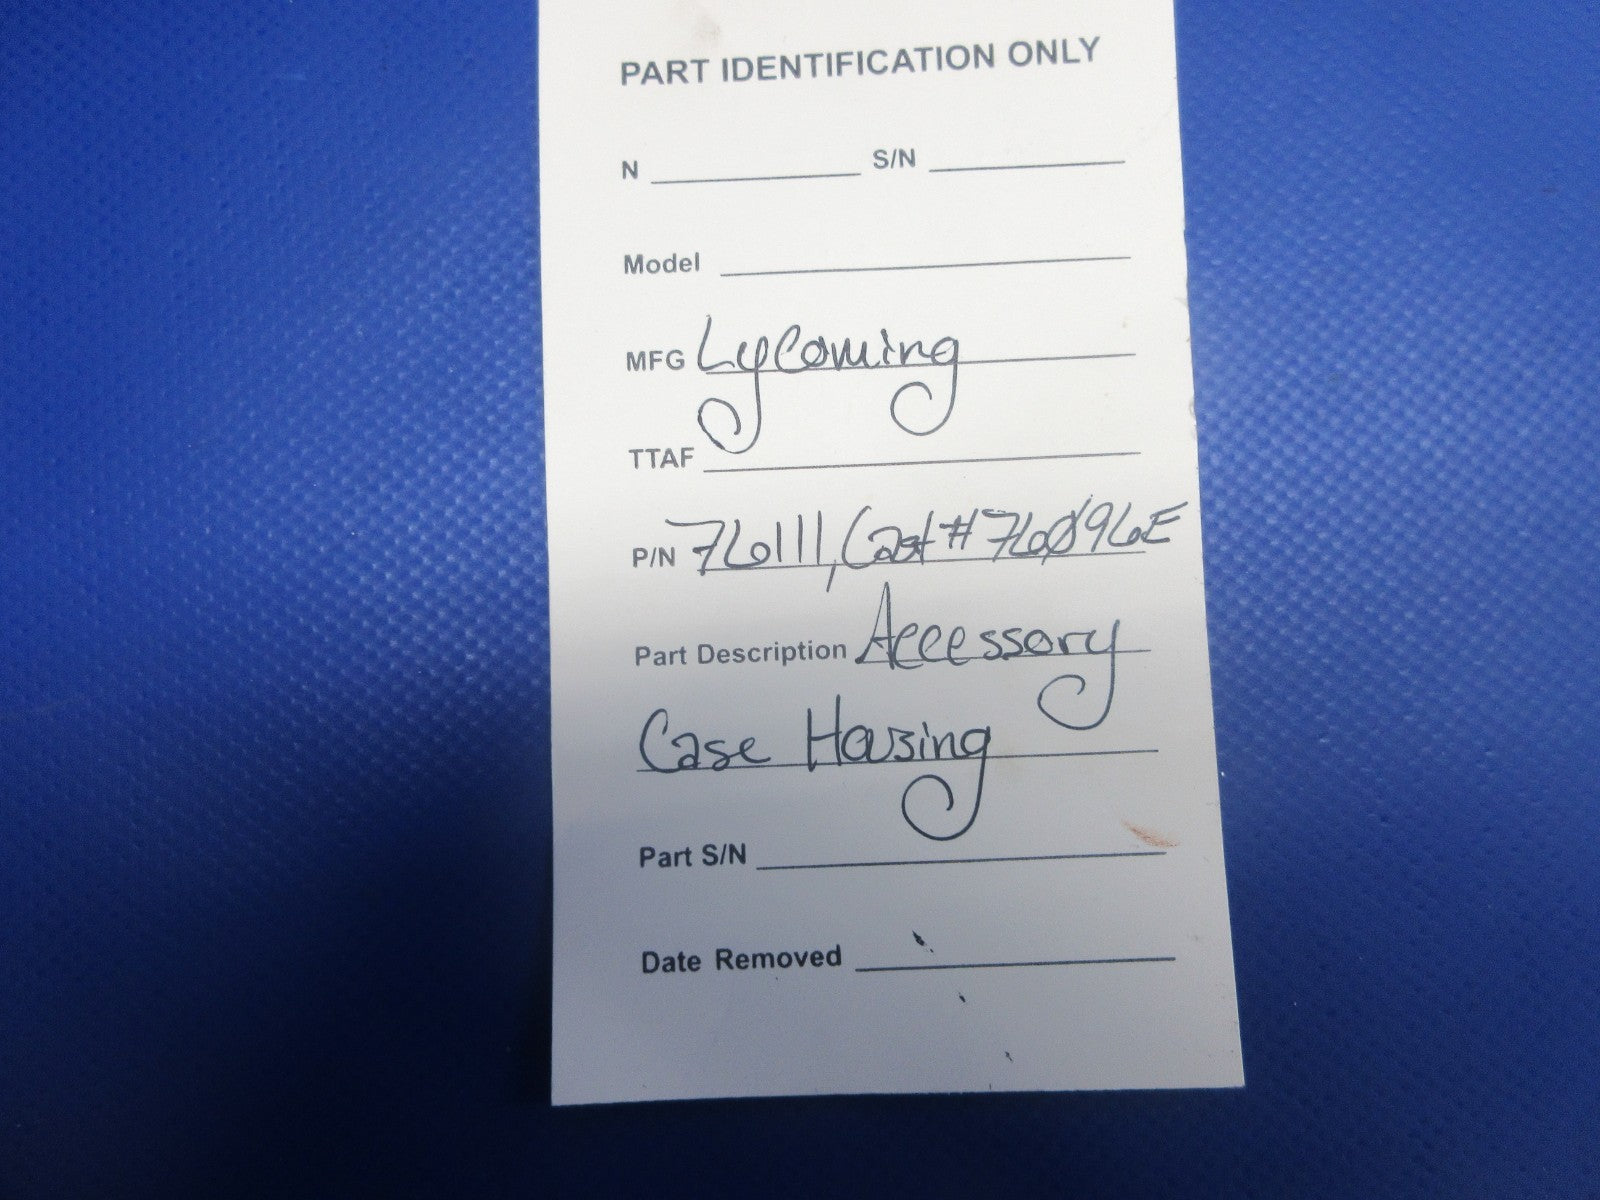 PART IDENTIFICATION ONLY
N S/N
Model
MFG Lycoming
TTAF
P/N 76111, Cast # 76096E
Part Description Accessory
Case Housing
Part S/N
Date Removed